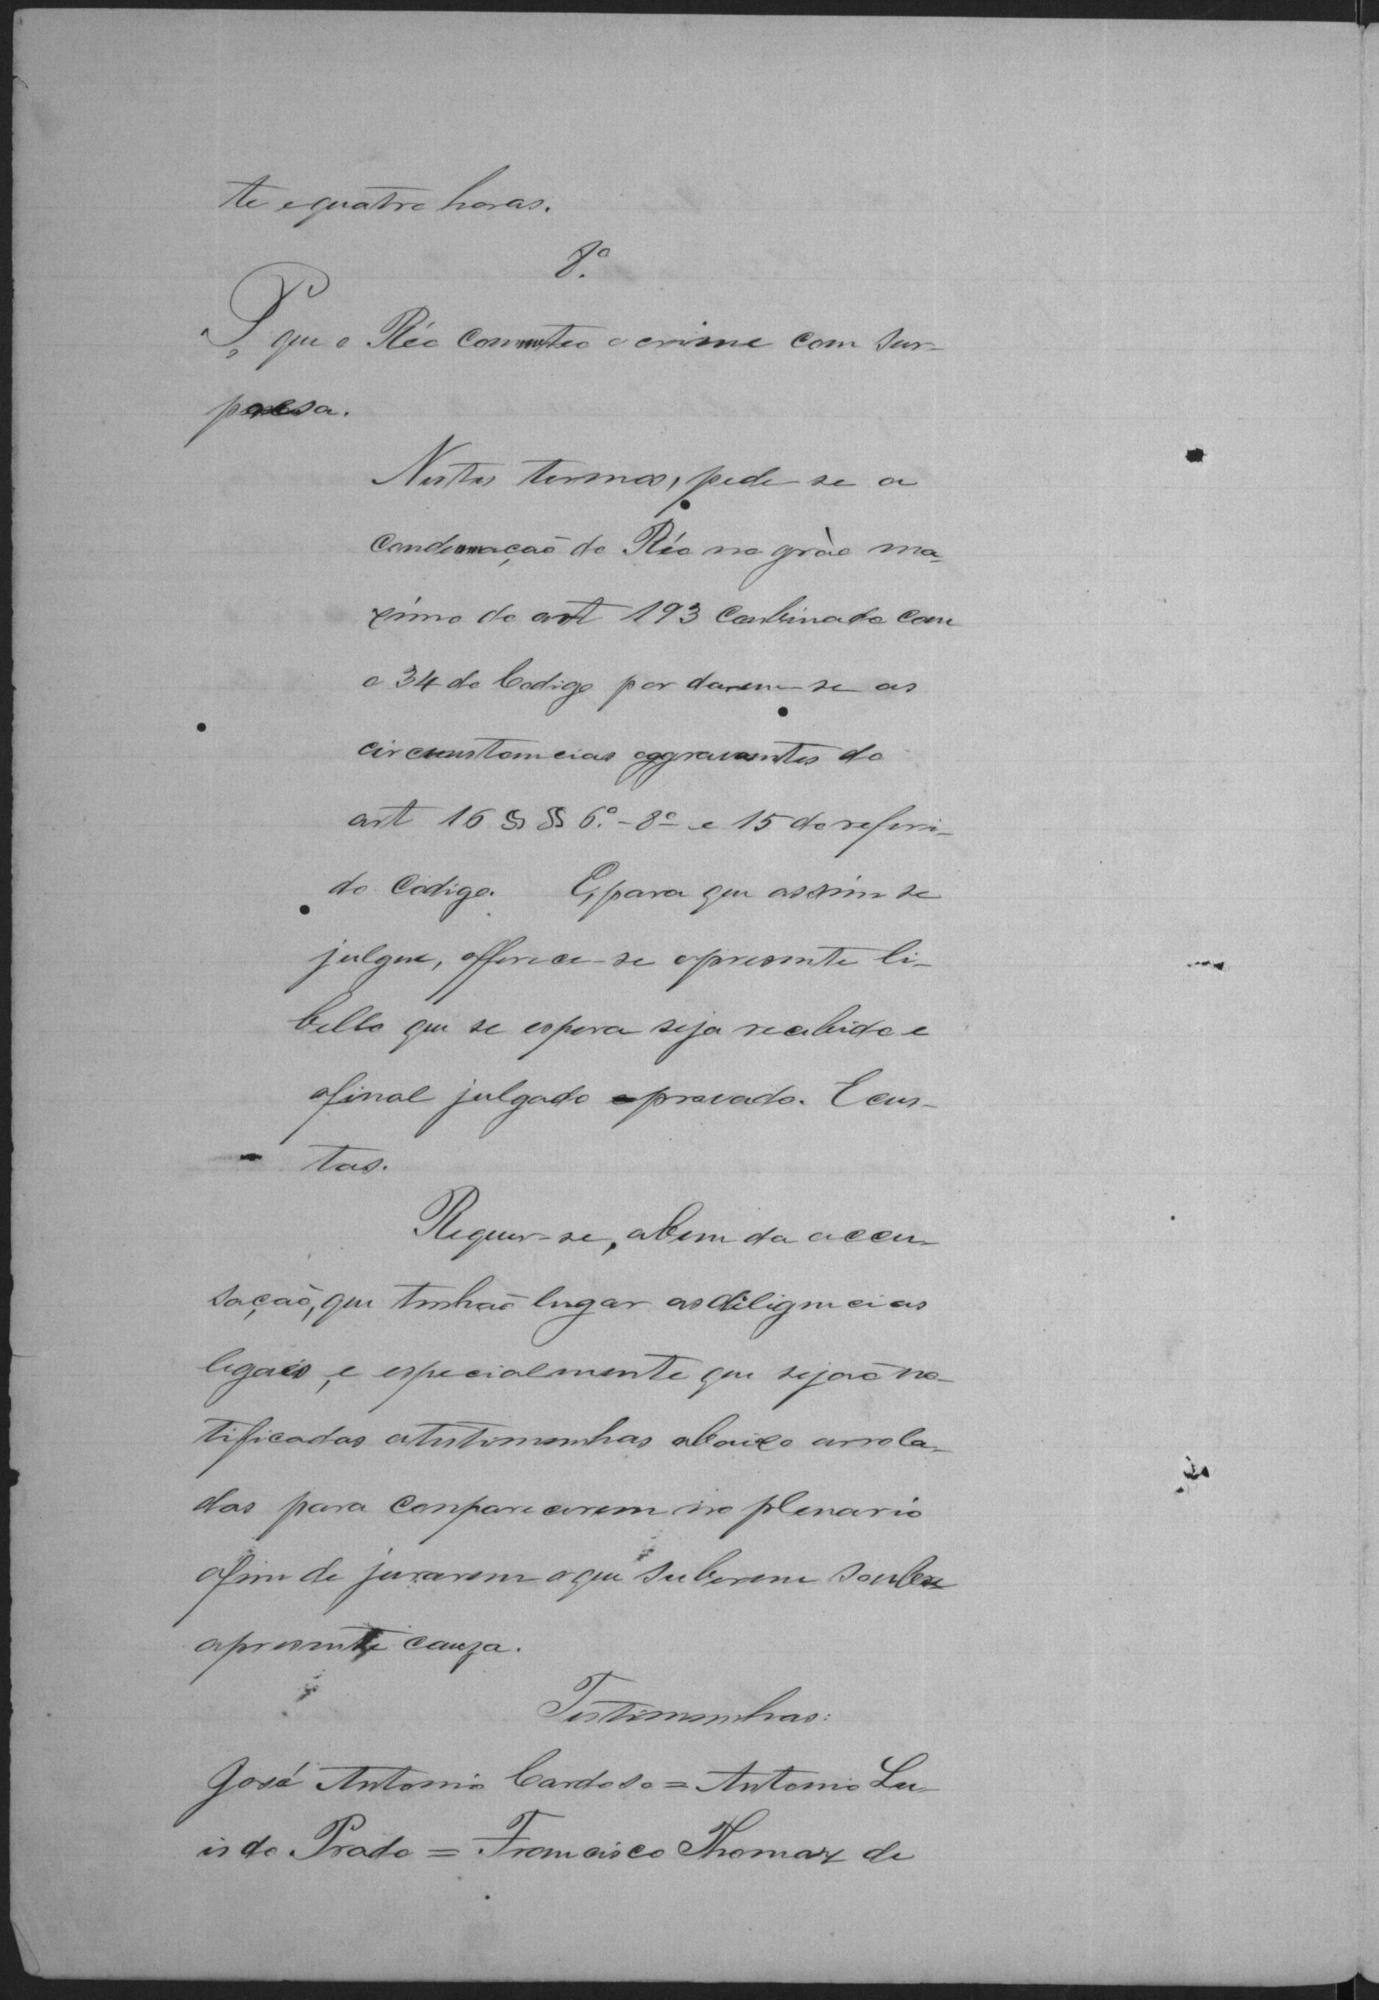 te e quatro horas.
8º
P. que o Réo commteo o crime com sur-
preesa.
Nestes termos, pede-se a
condemnação do Réo no gráo ma-
ximo do art 193 combinado com
o 34 do Codigo por darem-se as
circunstancias aggravantes do
art 16 §§ 6º-8º e 15 do referi-
do Codigo. E, para que assim se
julgue, offerece-se o presente li-
bello que se espera seja recebido e
afinal julgado provado. E cus-
tas.
Requer-se, a bem da accu-
sação, que tenhão lugar as diligencias
legaes, e especialmente que sejão no-
tificadas a testimunhas abaixo arrola-
das para comparecerem no plenario
afim de jurarem o que suberem soubre
a presente cauza.
Testimunhas:
José Antonio Cardoso = Antonio Lu-
is do Prado = Francisco Thomaz de